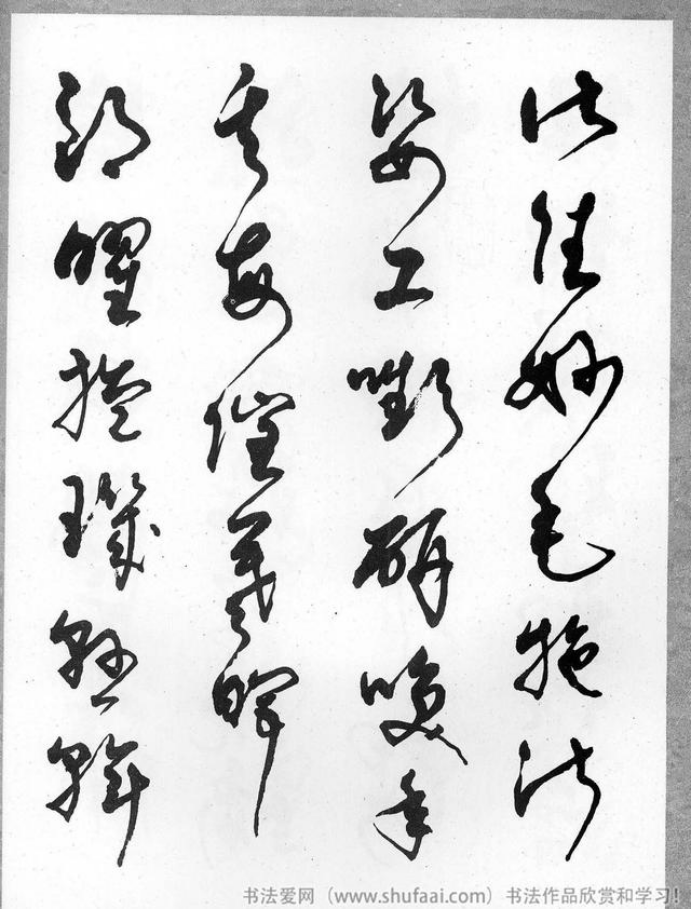 俗佳妙毛施淑
姿工顰妍笑年
矢每催羲暉
朗曜旋璣懸斡
书法爱网（www.shufaai.com）书法作品欣赏和学习！